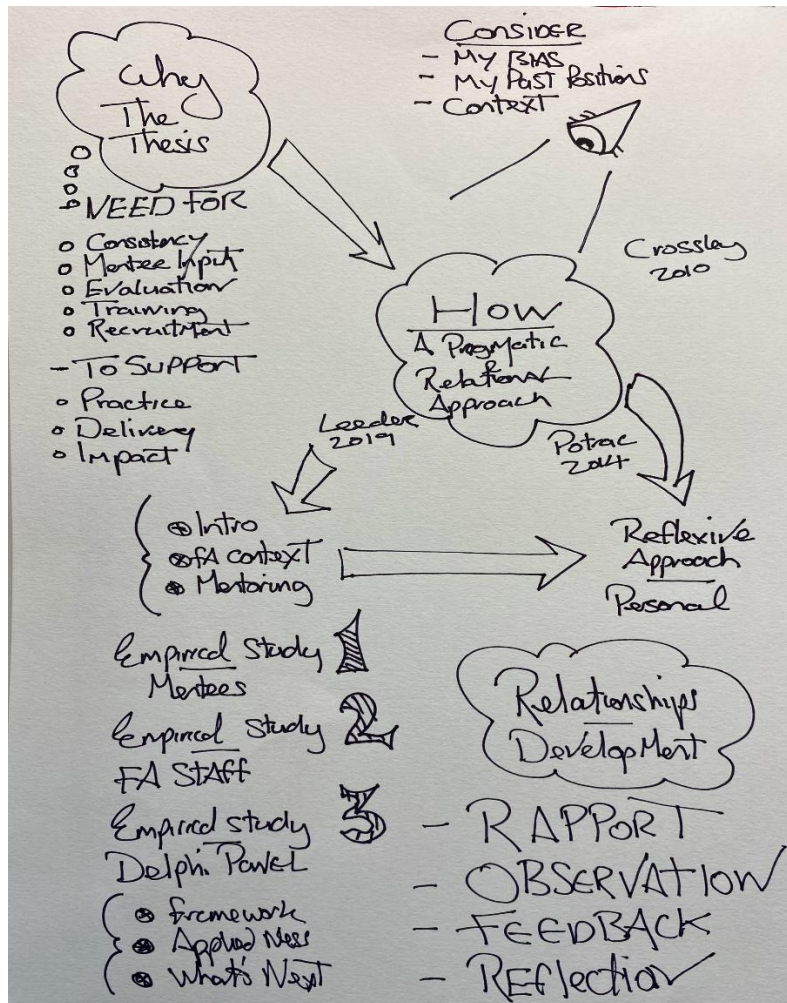 Why
The
Thesis
NEED FOR
Consistency
Mentee Input
Evaluation
Training
Recruitment
- To Support
Practice
Delivery
Impact
CONSIDER
- My BIAS
- My Past Positions
- Context
Crossley
2010
HOW
A Pragmatic
Relational
Approach
Leeder
2019
Potrac
2014
Intro
FA context
Mentoring
Reflexive
Approach
Personal
Empirical Study 1
Mentees
Empirical Study 2
FA Staff
Empirical Study 3
Delphi Panel
Framework
Applied Ness
What's Next
Relationships
Development
- RAPPORT
- OBSERVATION
- FEEDBACK
- REflection